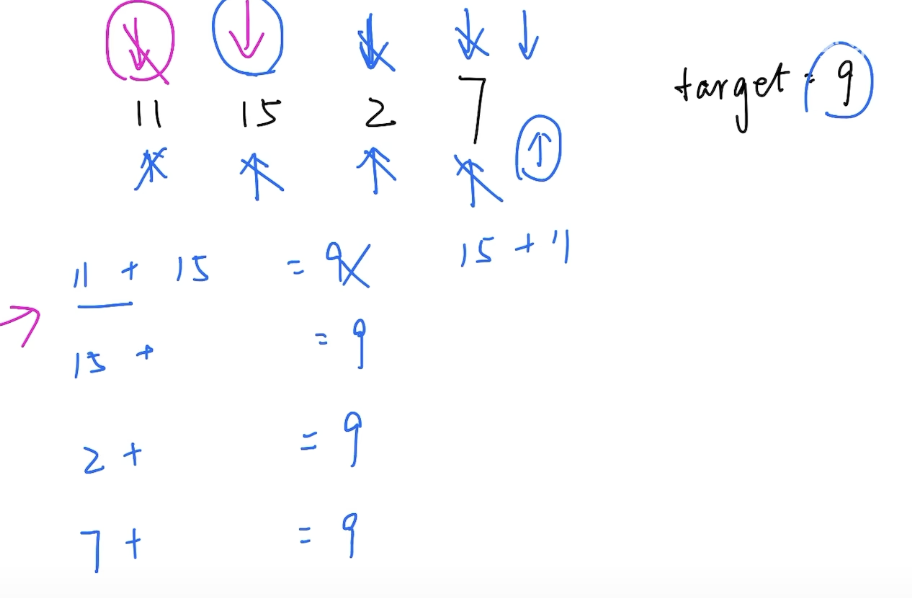 11 15 2 7
target = 9
11 + 15 = 9
15 + 11
15 + = 9
2 + = 9
7 + = 9